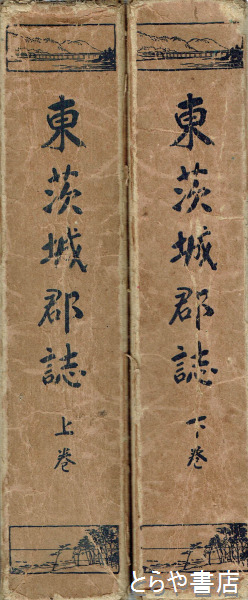 東茨城郡誌
下巻
東茨城郡誌
上巻
とらや書店